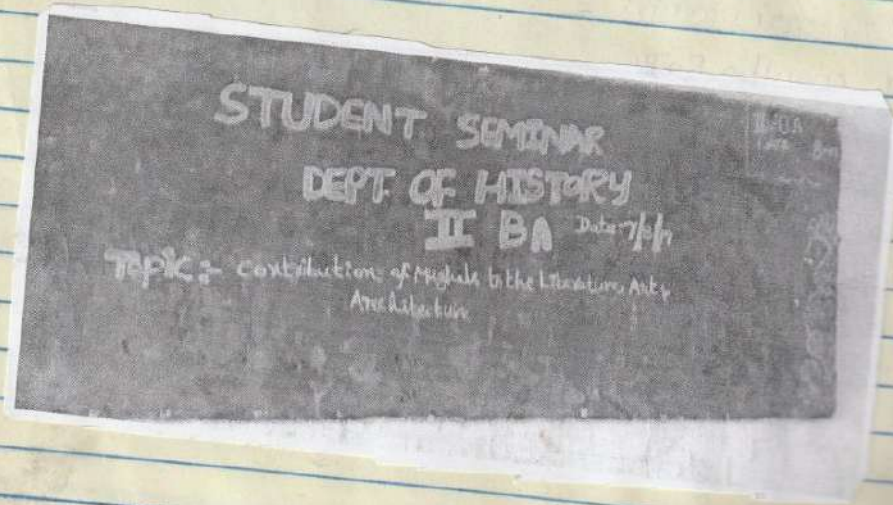 STUDENT SEMINAR
DEPT. OF HISTORY
II BA Date:-7/8/
Topic:- Contribution of Mughals to the Literature, Art &
Architecture